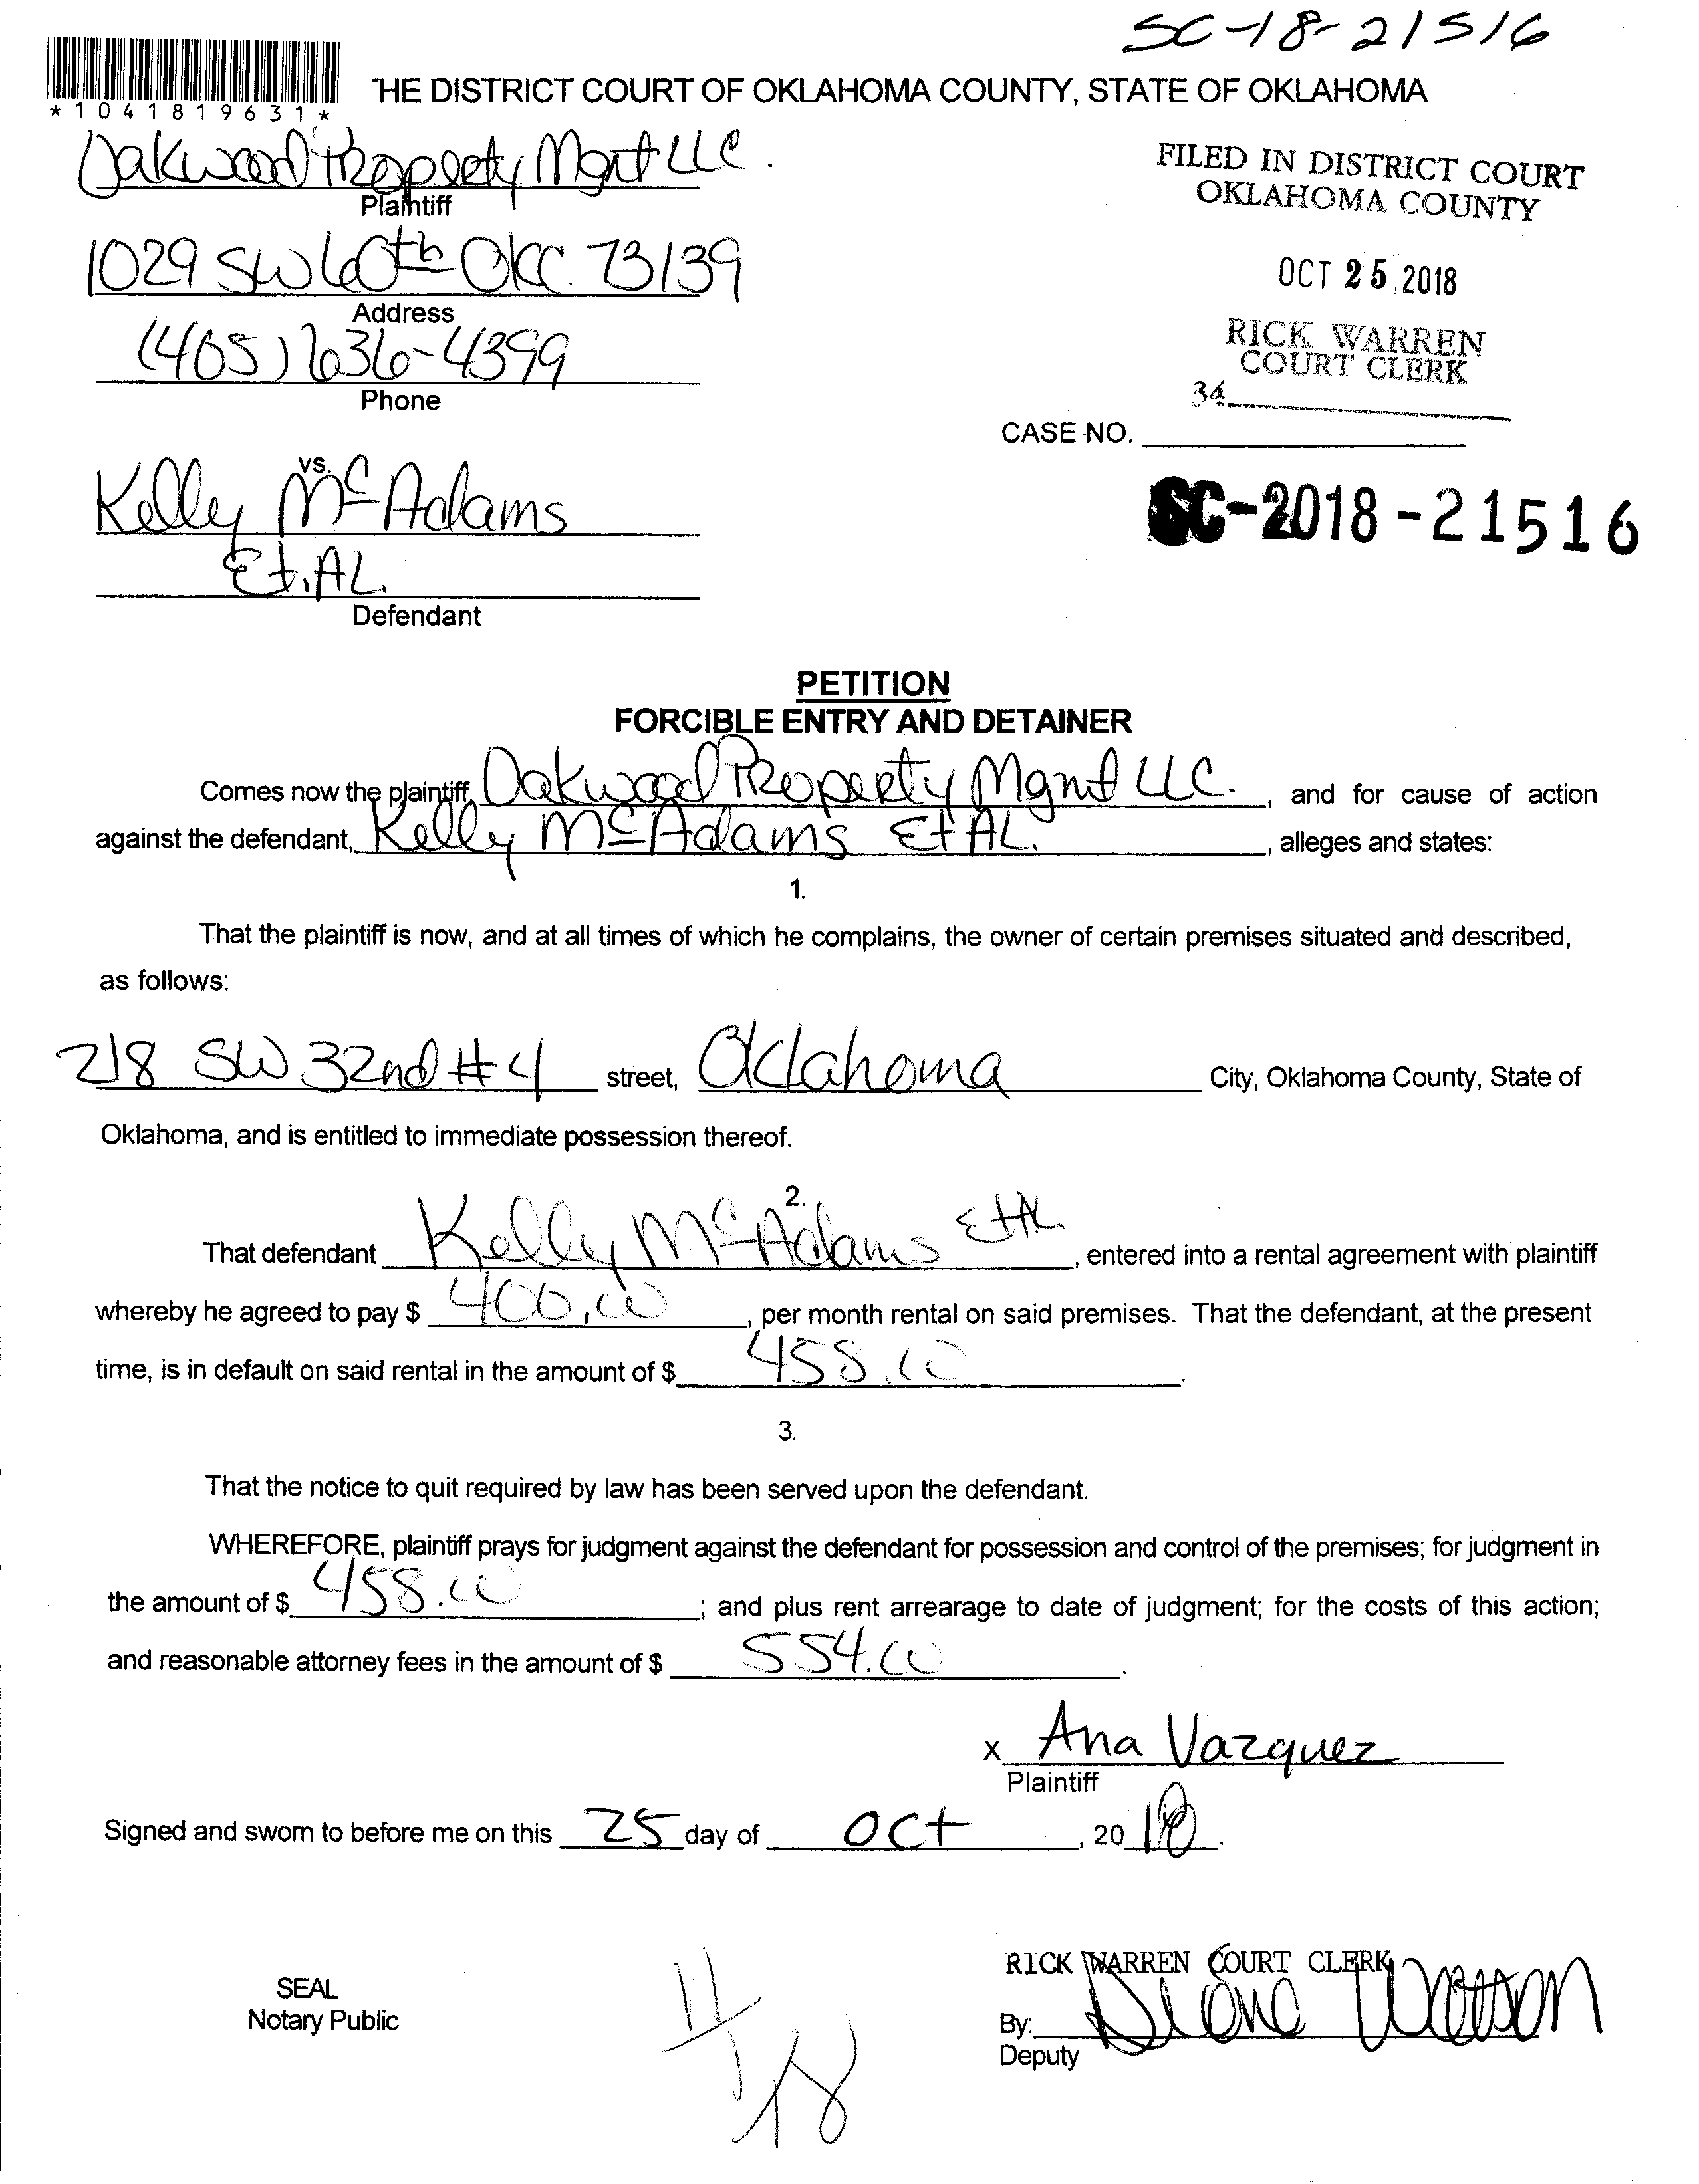 SC-18-21516
*1041819631*
HE DISTRICT COURT OF OKLAHOMA COUNTY, STATE OF OKLAHOMA
Oakwood Property Mgmt LLC.
Plaintiff
FILED IN DISTRICT COURT
OKLAHOMA COUNTY
1029 SW 60th OKC. 73139
Address
OCT 25 2018
(405) 636-4399
Phone
RICK WARREN
COURT CLERK
34
CASE NO.
vs.
Kelly McAdams
Et. AL.
Defendant
SC-2018-21516
PETITION
FORCIBLE ENTRY AND DETAINER
Comes now the plaintiff, Oakwood Property Mgmt LLC. , and for cause of action
against the defendant, Kelly McAdams Et AL. , alleges and states:
1.
That the plaintiff is now, and at all times of which he complains, the owner of certain premises situated and described,
as follows:
218 SW 32nd #4 street, Oklahoma City, Oklahoma County, State of
Oklahoma, and is entitled to immediate possession thereof.
2.
That defendant Kelly McAdams Et AL , entered into a rental agreement with plaintiff
whereby he agreed to pay $ 400.00 , per month rental on said premises. That the defendant, at the present
time, is in default on said rental in the amount of $ 458.00 .
3.
That the notice to quit required by law has been served upon the defendant.
WHEREFORE, plaintiff prays for judgment against the defendant for possession and control of the premises; for judgment in
the amount of $ 458.00 ; and plus rent arrearage to date of judgment; for the costs of this action;
and reasonable attorney fees in the amount of $ 554.00 .
x Ana Vazquez
Plaintiff
Signed and sworn to before me on this 25 day of Oct , 20 18 .
SEAL
Notary Public
RICK WARREN COURT CLERK
By: Diane Watson
Deputy
11/18